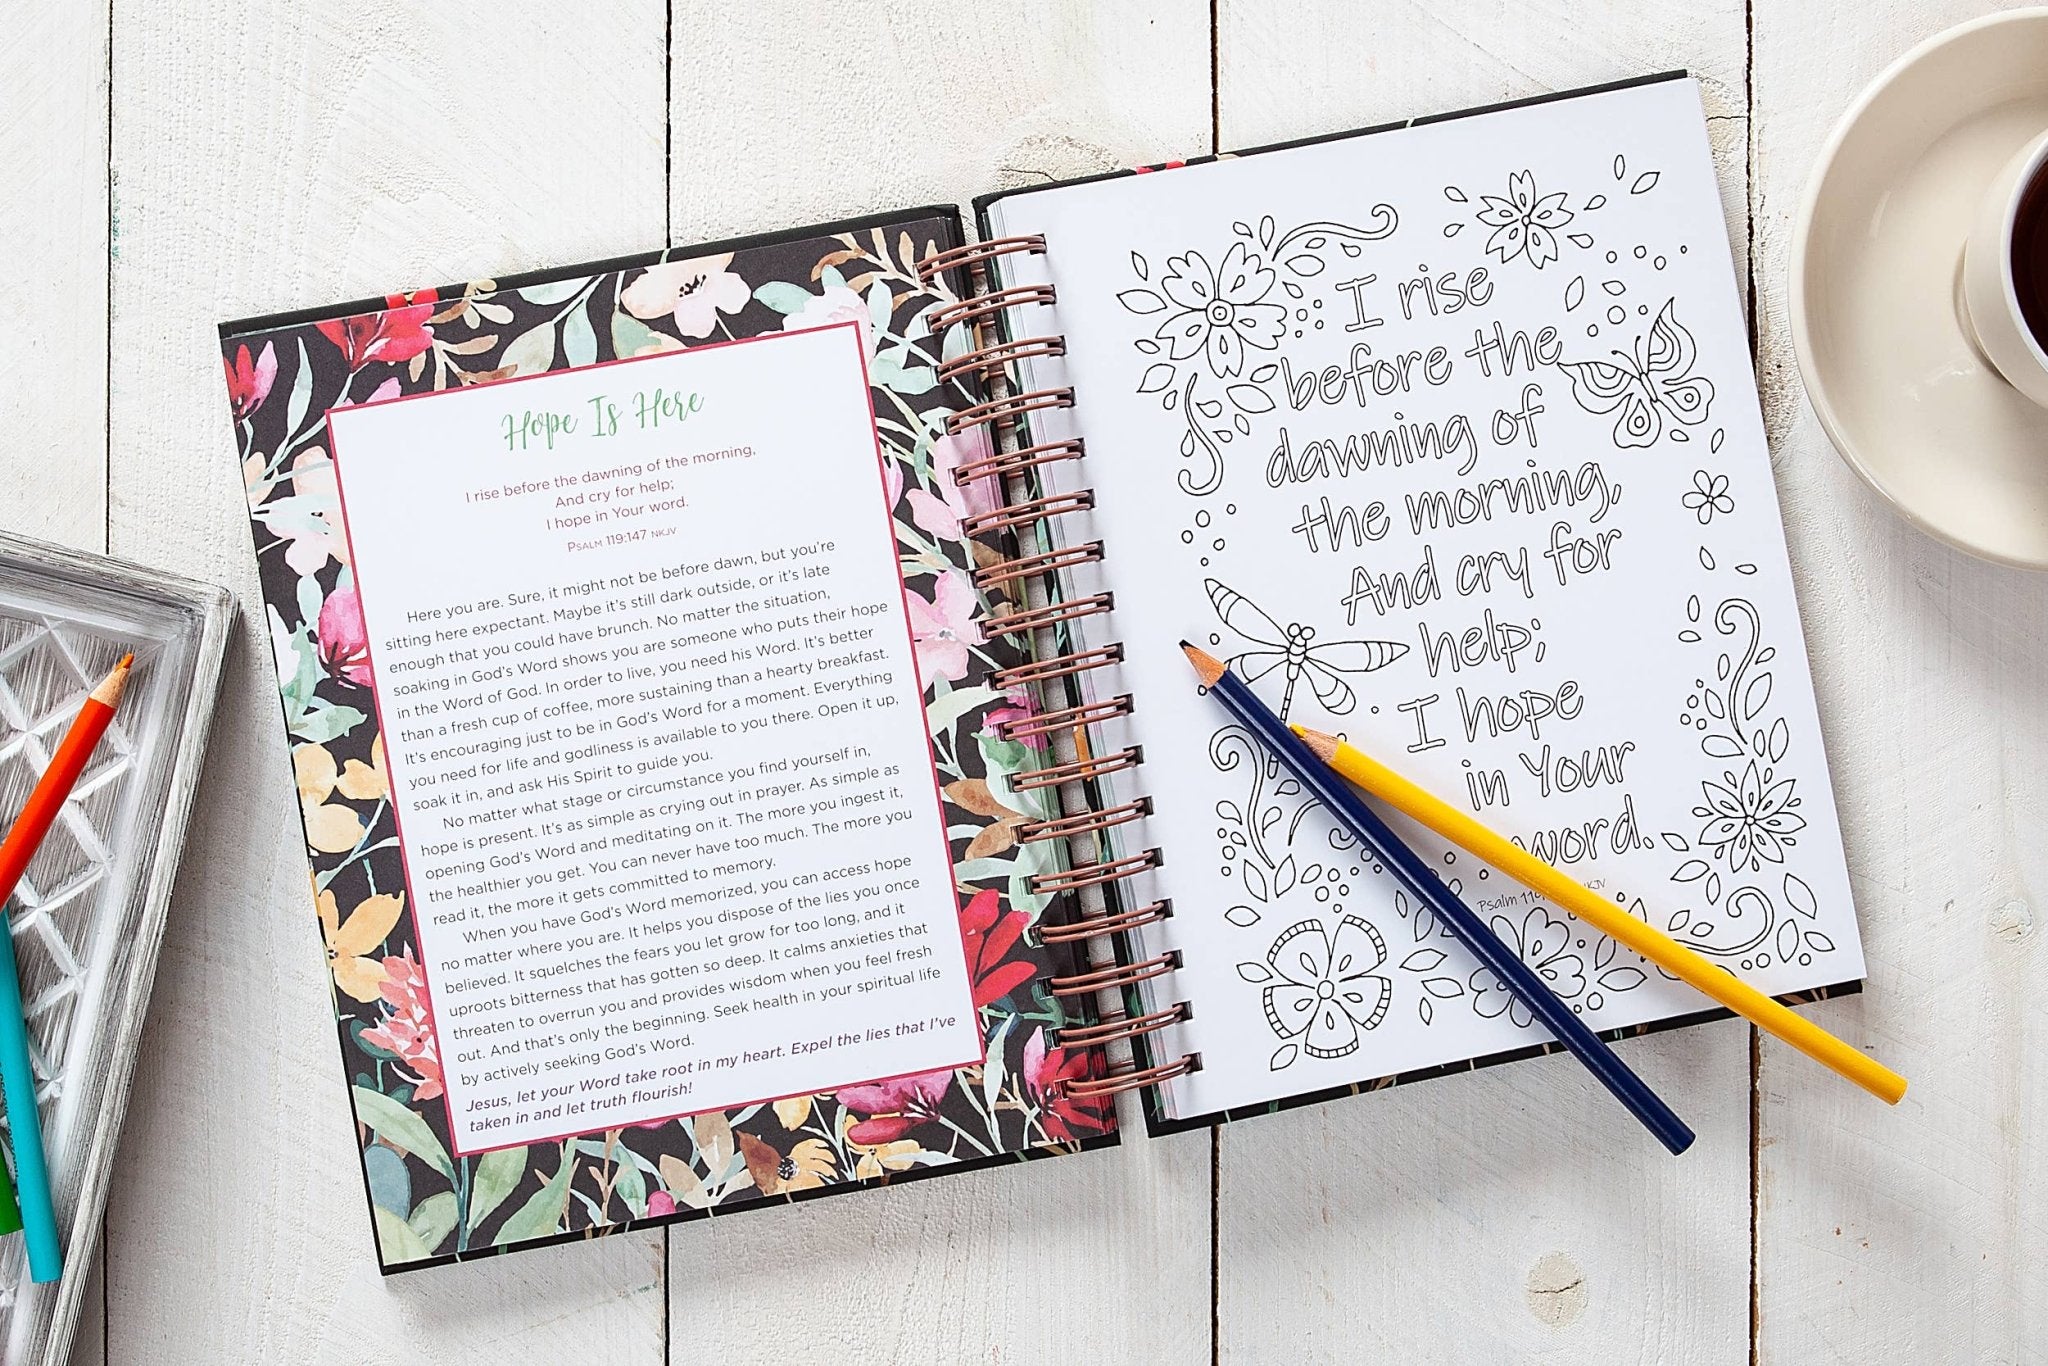 Hope Is Here
I rise before the dawning of the morning,
And cry for help;
I hope in Your word.
Psalm 119:147 NKJV
Here you are. Sure, it might not be before dawn, but you’re
sitting here expectant. Maybe it’s still dark outside, or it’s late
enough that you could have brunch. No matter the situation,
soaking in God’s Word shows you are someone who puts their hope
in the Word of God. In order to live, you need his Word. It’s better
than a fresh cup of coffee, more sustaining than a hearty breakfast.
It’s encouraging just to be in God’s Word for a moment. Everything
you need for life and godliness is available to you there. Open it up,
soak it in, and ask His Spirit to guide you.
No matter what stage or circumstance you find yourself in,
hope is present. It’s as simple as crying out in prayer. As simple as
opening God’s Word and meditating on it. The more you ingest it,
the healthier you get. You can never have too much. The more you
read it, the more it gets committed to memory.
When you have God’s Word memorized, you can access hope
no matter where you are. It helps you dispose of the lies you once
believed. It squelches the fears you let grow for too long, and it
uproots bitterness that has gotten so deep. It calms anxieties that
threaten to overrun you and provides wisdom when you feel fresh
out. And that’s only the beginning. Seek health in your spiritual life
by actively seeking God’s Word.
Jesus, let your Word take root in my heart. Expel the lies that I’ve
taken in and let truth flourish!
I rise
before the
dawning of
the morning,
And cry for
help;
I hope
in Your
word.
Psalm NKJV